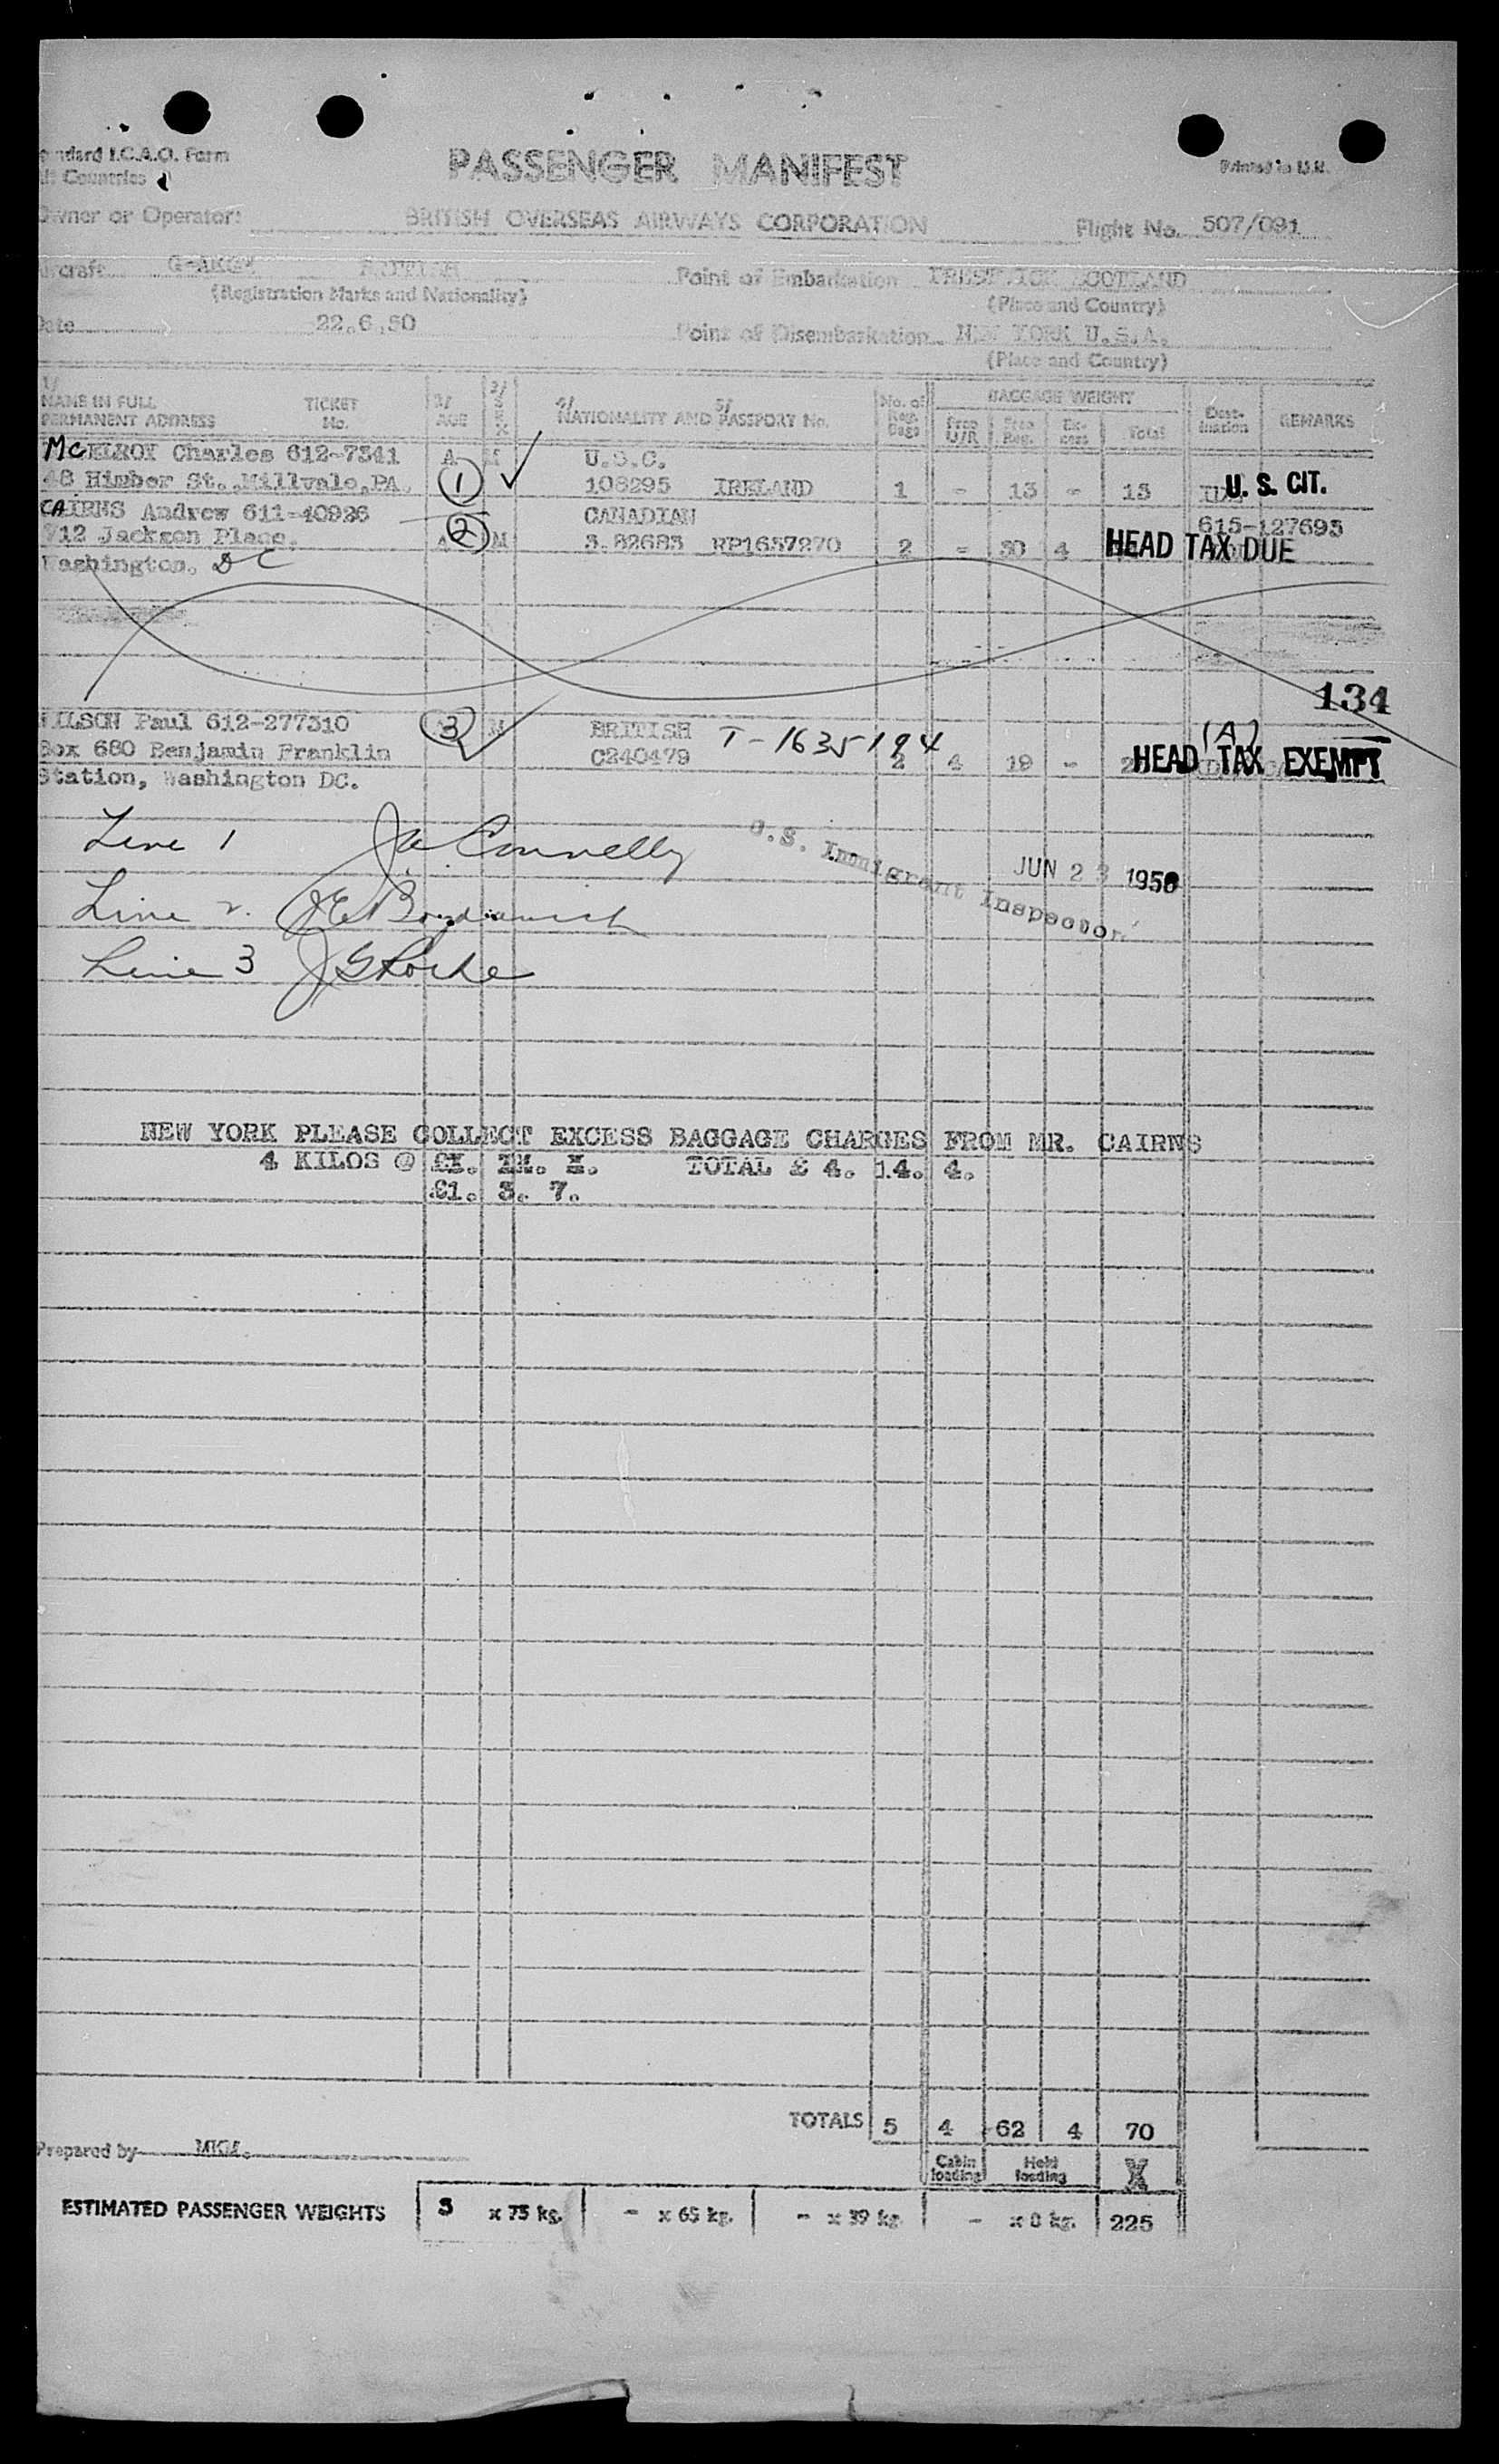 I.C.A.O. Form
Countries
PASSENGER MANIFEST
Printed in U.K.
Owner or Operator: BRITISH OVERSEAS AIRWAYS CORPORATION Flight No. 507/091
(Registration Marks and Nationality)
Point of Embarkation PRESTWICK SCOTLAND
(Place and Country)
Date 22.6.50
Point of Disembarkation NEW YORK U.S.A.
(Place and Country)
1/ NAME IN FULL PERMANENT ADDRESS TICKET No. AGE SEX 4/ NATIONALITY AND 5/ PASSPORT No. No. of Reg. Bags BAGGAGE WEIGHT Free U/R Free Reg. Ex-cess Total Dest-ination REMARKS
McELROY Charles 612-7341 A M U.S.C.
48 Himber St., Millvale, PA. 1 108295 IRELAND 1 - 13 - 13 U. S. CIT.
CAIRNS Andrew 611-40926 CANADIAN 615-127693
712 Jackson Place, 2 M 3.82683 RP1657270 2 - 30 4 HEAD TAX DUE
Washington, DC
134
WILSON Paul 612-277310 3 M BRITISH T-1635194 (A)
Box 680 Benjamin Franklin C240479 2 4 19 - HEAD TAX EXEMPT
Station, Washington DC.
Line 1 Ja Connelly
U.S. Immigrant Inspector.
JUN 23 1950
Line 2.
Line 3
NEW YORK PLEASE COLLECT EXCESS BAGGAGE CHARGES FROM MR. CAIRNS
4 KILOS @ TOTAL £ 4. 14. 4.
£1. 3. 7.
TOTALS 5 4 62 4 70
Prepared by MKM.
Cabin loading Hold loading X
ESTIMATED PASSENGER WEIGHTS 3 x 75 kg. - x 65 kg. - x 39 kg. - x 8 kg. 225